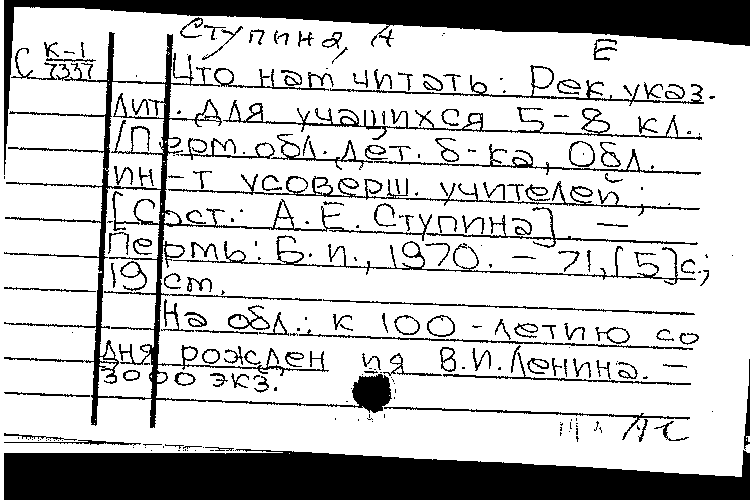 Ступина, А
Е
С К-1
7337
Что нам читать: Рек. указ.
лит. для учащихся 5-8 кл.
/Перм. обл. дет. б-ка, Обл.
ин-т усоверш. учителей;
[Сост.: А.Е. Ступина]. —
Пермь: Б.и., 1970. – 71, [5] с;
19 см.
На обл.: к 100-летию со
дня рожден ия В.И. Ленина. —
3000 экз.